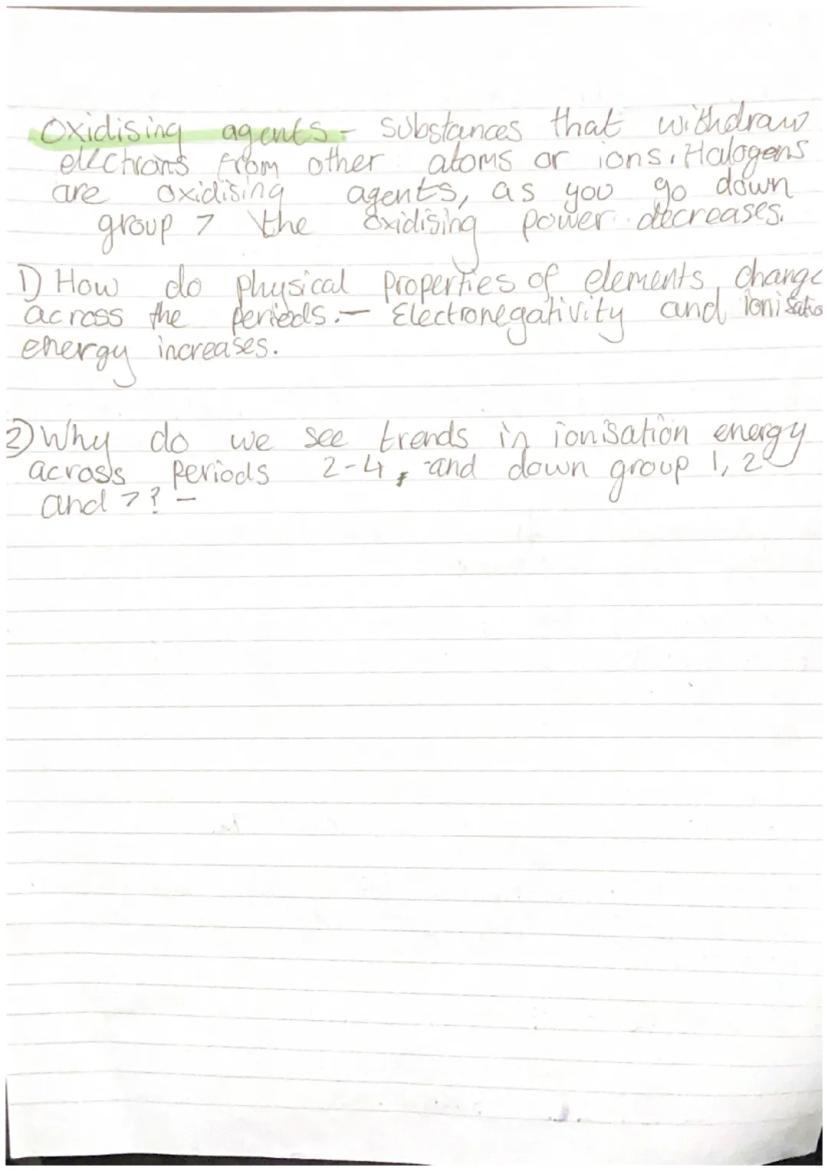 Oxidising agents - substances that withdraw
electrons from other atoms or ions. Halogens
are oxidising agents, as you go down
group 7 the oxidising power decreases.
1) How do physical properties of elements change
across the periods. - Electronegativity and ionisatio
energy increases.
2) Why do we see trends in ionisation energy
across periods 2-4, and down group 1, 2
and 7? -